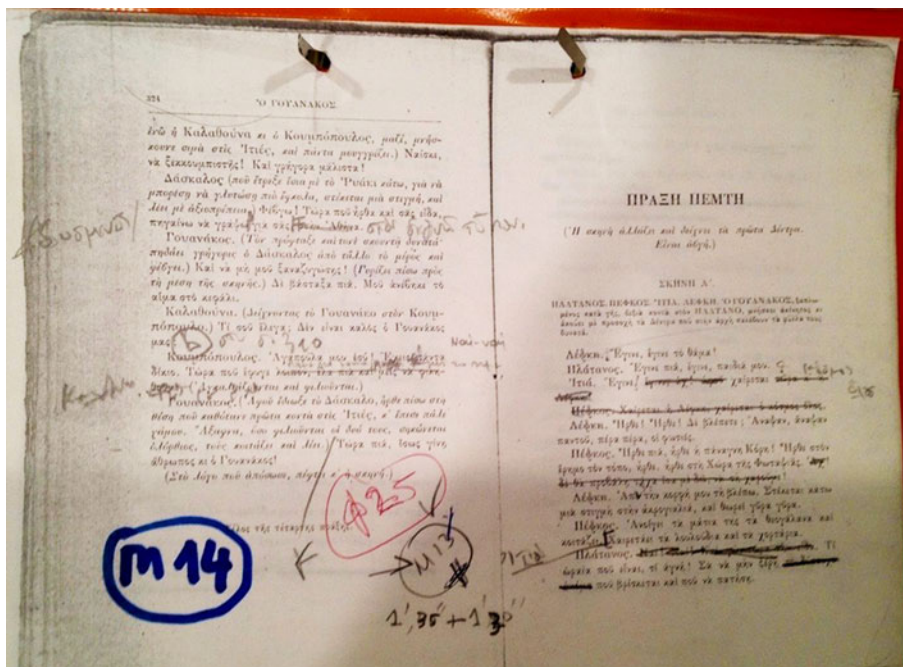 324
Ὁ ΓΟΥΑΝΑΚΟΣ
ἐνῶ ἡ Καλαθούνα κι ὁ Κουμπόπουλος, μαζί, μνήσ-
κουνε σιμὰ στὶς Ἰτιές, καὶ πάντα μουγγρίζει.) Ναίσκε,
νὰ ξεκουμπιστῆς! Καὶ γρήγορα μάλιστα!
Δάσκαλος (ποὺ ἔτρεξε ἴσια μὲ τὸ Ῥυάκι κάτω, γιὰ νὰ
μπορέση νὰ γλυτώση πιὸ εὔκολα, στέκεται μιὰ στιγμή, καὶ
λέει μὲ ἀξιοπρέπεια.) Φέβγω! Τώρα ποὺ ἦρθα καὶ σᾶς εἶδα,
πηγαίνω νὰ γράψω γιὰ σᾶς
Γουανάκος. (Τὸν
πηδάει γρήγορις ὁ Δάσκαλος ἀπὸ τἄλλο τὸ μέρος καὶ
φέβγει.) Καὶ νὰ μὴ μοῦ ξαναζυγώτης! (Γυρίζει πίσω πρὸς
τὴ μέση τῆς σκηνῆς.) Δὲ βάσταξα πιά. Μοῦ ἀνέβηκε τὸ
αἷμα στὸ κεφάλι.
Καλαθούνα. (Δείχνοντας τὸ Γουανάκο στὸν Κουμ-
πόπουλο.) Τί σοῦ ἔλεγα; Δὲν εἶναι καλὸς ὁ Γουανάκος
μας
b
Κουμπόπουλος. Ἀγάπουλα μου ἐσύ!
δίκιο. Τώρα ποὺ ἔφυγε
(Ἀγκαλιάζουνται καὶ φιλιοῦνται.)
Γουανάκος. (Ἀφοῦ ἔδιωξε τὸ Δάσκαλο, ἦρθε πίσω στὴ
θέση ποὺ καθότανε πρῶτα κοντὰ στὶς Ἰτιές, κ' ἔπεσε πάλε
χάμου. Ἄξαφνα, ὅσο φιλιοῦνται οἱ δυό τους, σηκώνεται
ὁλόρθος, τοὺς κοιτάζει καὶ λέει.) Τώρα πιά, ἴσως γίνη
ἄθρωπος κι ὁ Γουανάκος!
(Στὸ λόγο ποὺ ἀπόσωσε, πέφτει κ' ἡ σκηνή.)
τῆς τέταρτης πράξης.
Φ25
m 14
M 13
1', 35" + 1' 30"
ΠΡΑΞΗ ΠΕΜΤΗ
(Ἡ σκηνὴ ἀλλάζει καὶ δείχνει τὰ πρῶτα Δέντρα.
Εἶναι ἀβγή.)
ΣΚΗΝΗ Α΄.
ΠΛΑΤΑΝΟΣ, ΠΕΦΚΟΣ, ἸΤΙΑ, ΛΕΦΚΗ, Ὁ ΓΟΥΑΝΑΚΟΣ,
μένος κατὰ γῆς, δεξιὰ κοντὰ στὸν ΠΛΑΤΑΝΟ, μνήσκει ἀκίνητος κι
ἀκούει μὲ προσοχὴ τὰ Δέντρα ποὺ στὴν ἀρχὴ σαλέβουν τὰ φύλλα τους
δυνατά.
Λέφκη. Ἔγινε, ἔγινε τὸ θάμα!
Πλάτανος. Ἔγινε πιά, ἔγινε, παιδιά μου.
Ἰτιά. Ἔγινε! χαίρεται
Πέφκος. Χαίρεται ἡ Λέφκη, χαίρεται ὁ κόσμος ὅλος.
Λέφκη. Ἦρθε! Ἦρθε! Δὲ βλέπετε; Ἄναψαν, ἄναψαν
παντοῦ, πέρα πέρα, οἱ φωτιές.
Πέφκος. Ἦρθε πιά, ἦρθε ἡ πάναγνη Κόρη! Ἦρθε στὸν
ἔρημο τὸν τόπο, ἦρθε, ἦρθε στὴ Χώρα τῆς Φωταψίας.
Λέφκη. Ἀπὸ τὴν κορφή μου τὴ βλέπω. Στέκεται κάτω
μιὰ στιγμὴ στὴν ἀκρογιαλιά, καὶ θωρεῖ γύρα γύρα.
Πέφκος. Ἀνοίγει τὰ μάτια της τὰ θεογάλανα καὶ
κοιτάζει. Χαιρετάει τὰ λουλούδια καὶ τὰ χορτάρια.
Πλάτανος. Τί
ὡραία ποὺ εἶναι, τί ἁγνή! Σὰ νὰ μὴν ξέρη,
ποὺ βρίσκεται καὶ ποὺ νὰ πατήση.